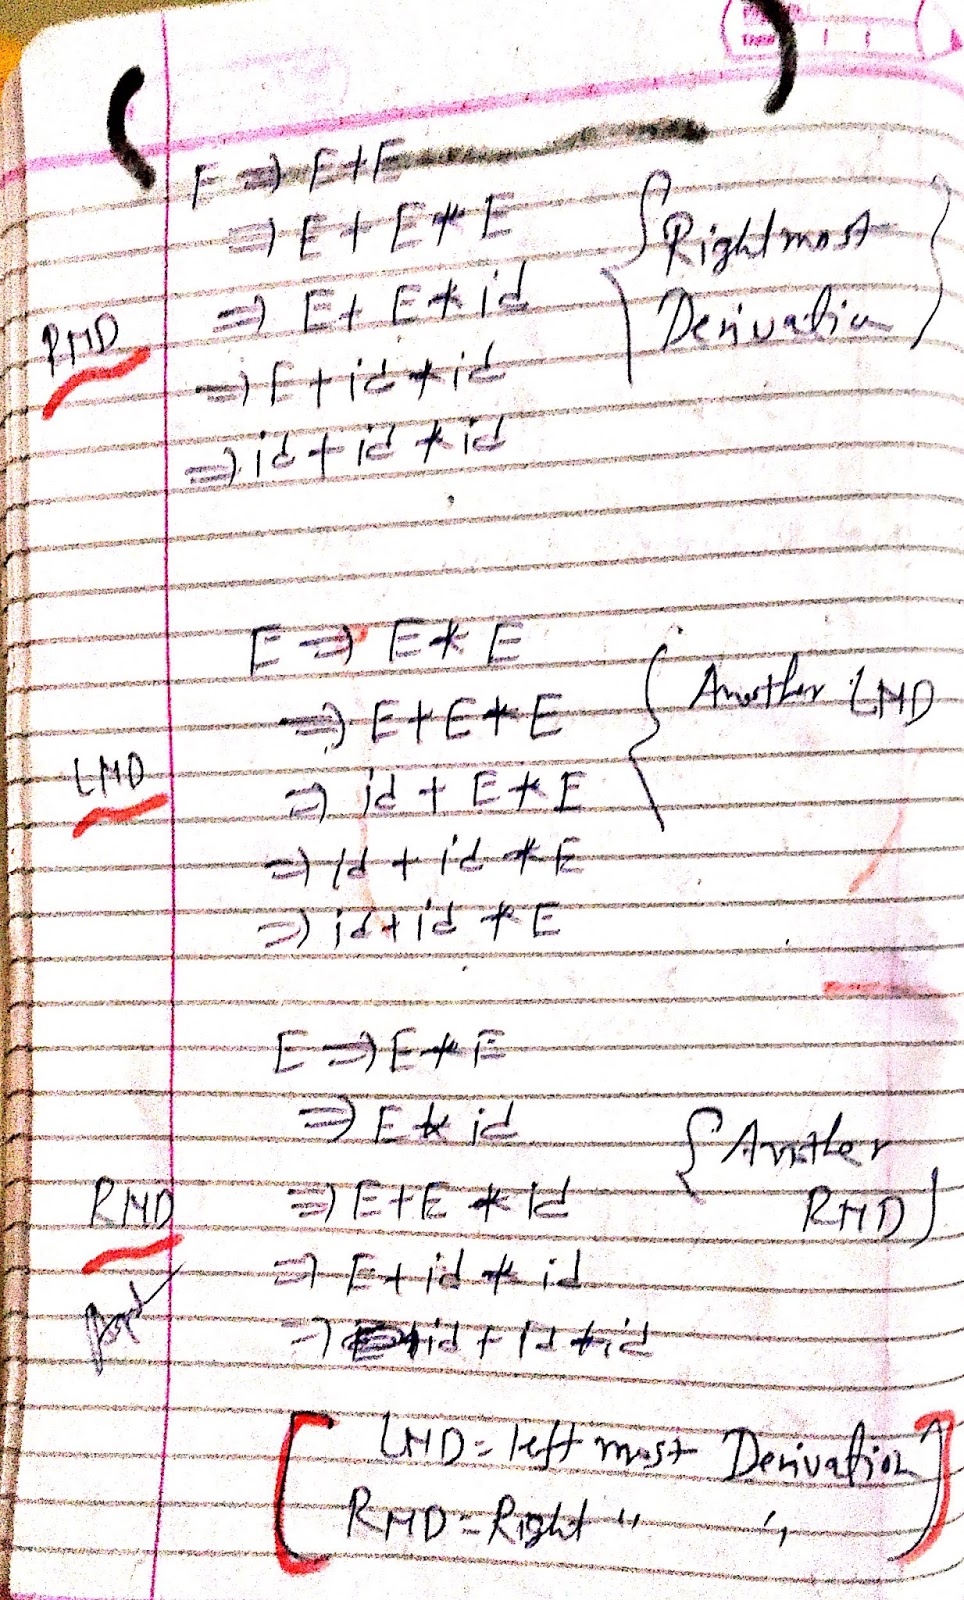 E ⇒ E+E
⇒ E + E * E
⇒ E + E * id
⇒ E + id * id
⇒ id + id * id
RMD
{ Rightmost
Derivation }
E ⇒ E * E
⇒ E + E * E
⇒ id + E * E
⇒ id + id * E
⇒ id + id * E
LMD
{ Another LMD
E ⇒ E * E
⇒ E * id
⇒ E + E * id
⇒ E + id * id
⇒ id + id * id
RMD
{ Another
RMD }
[ LMD = left most Derivation
RMD = Right " " ]